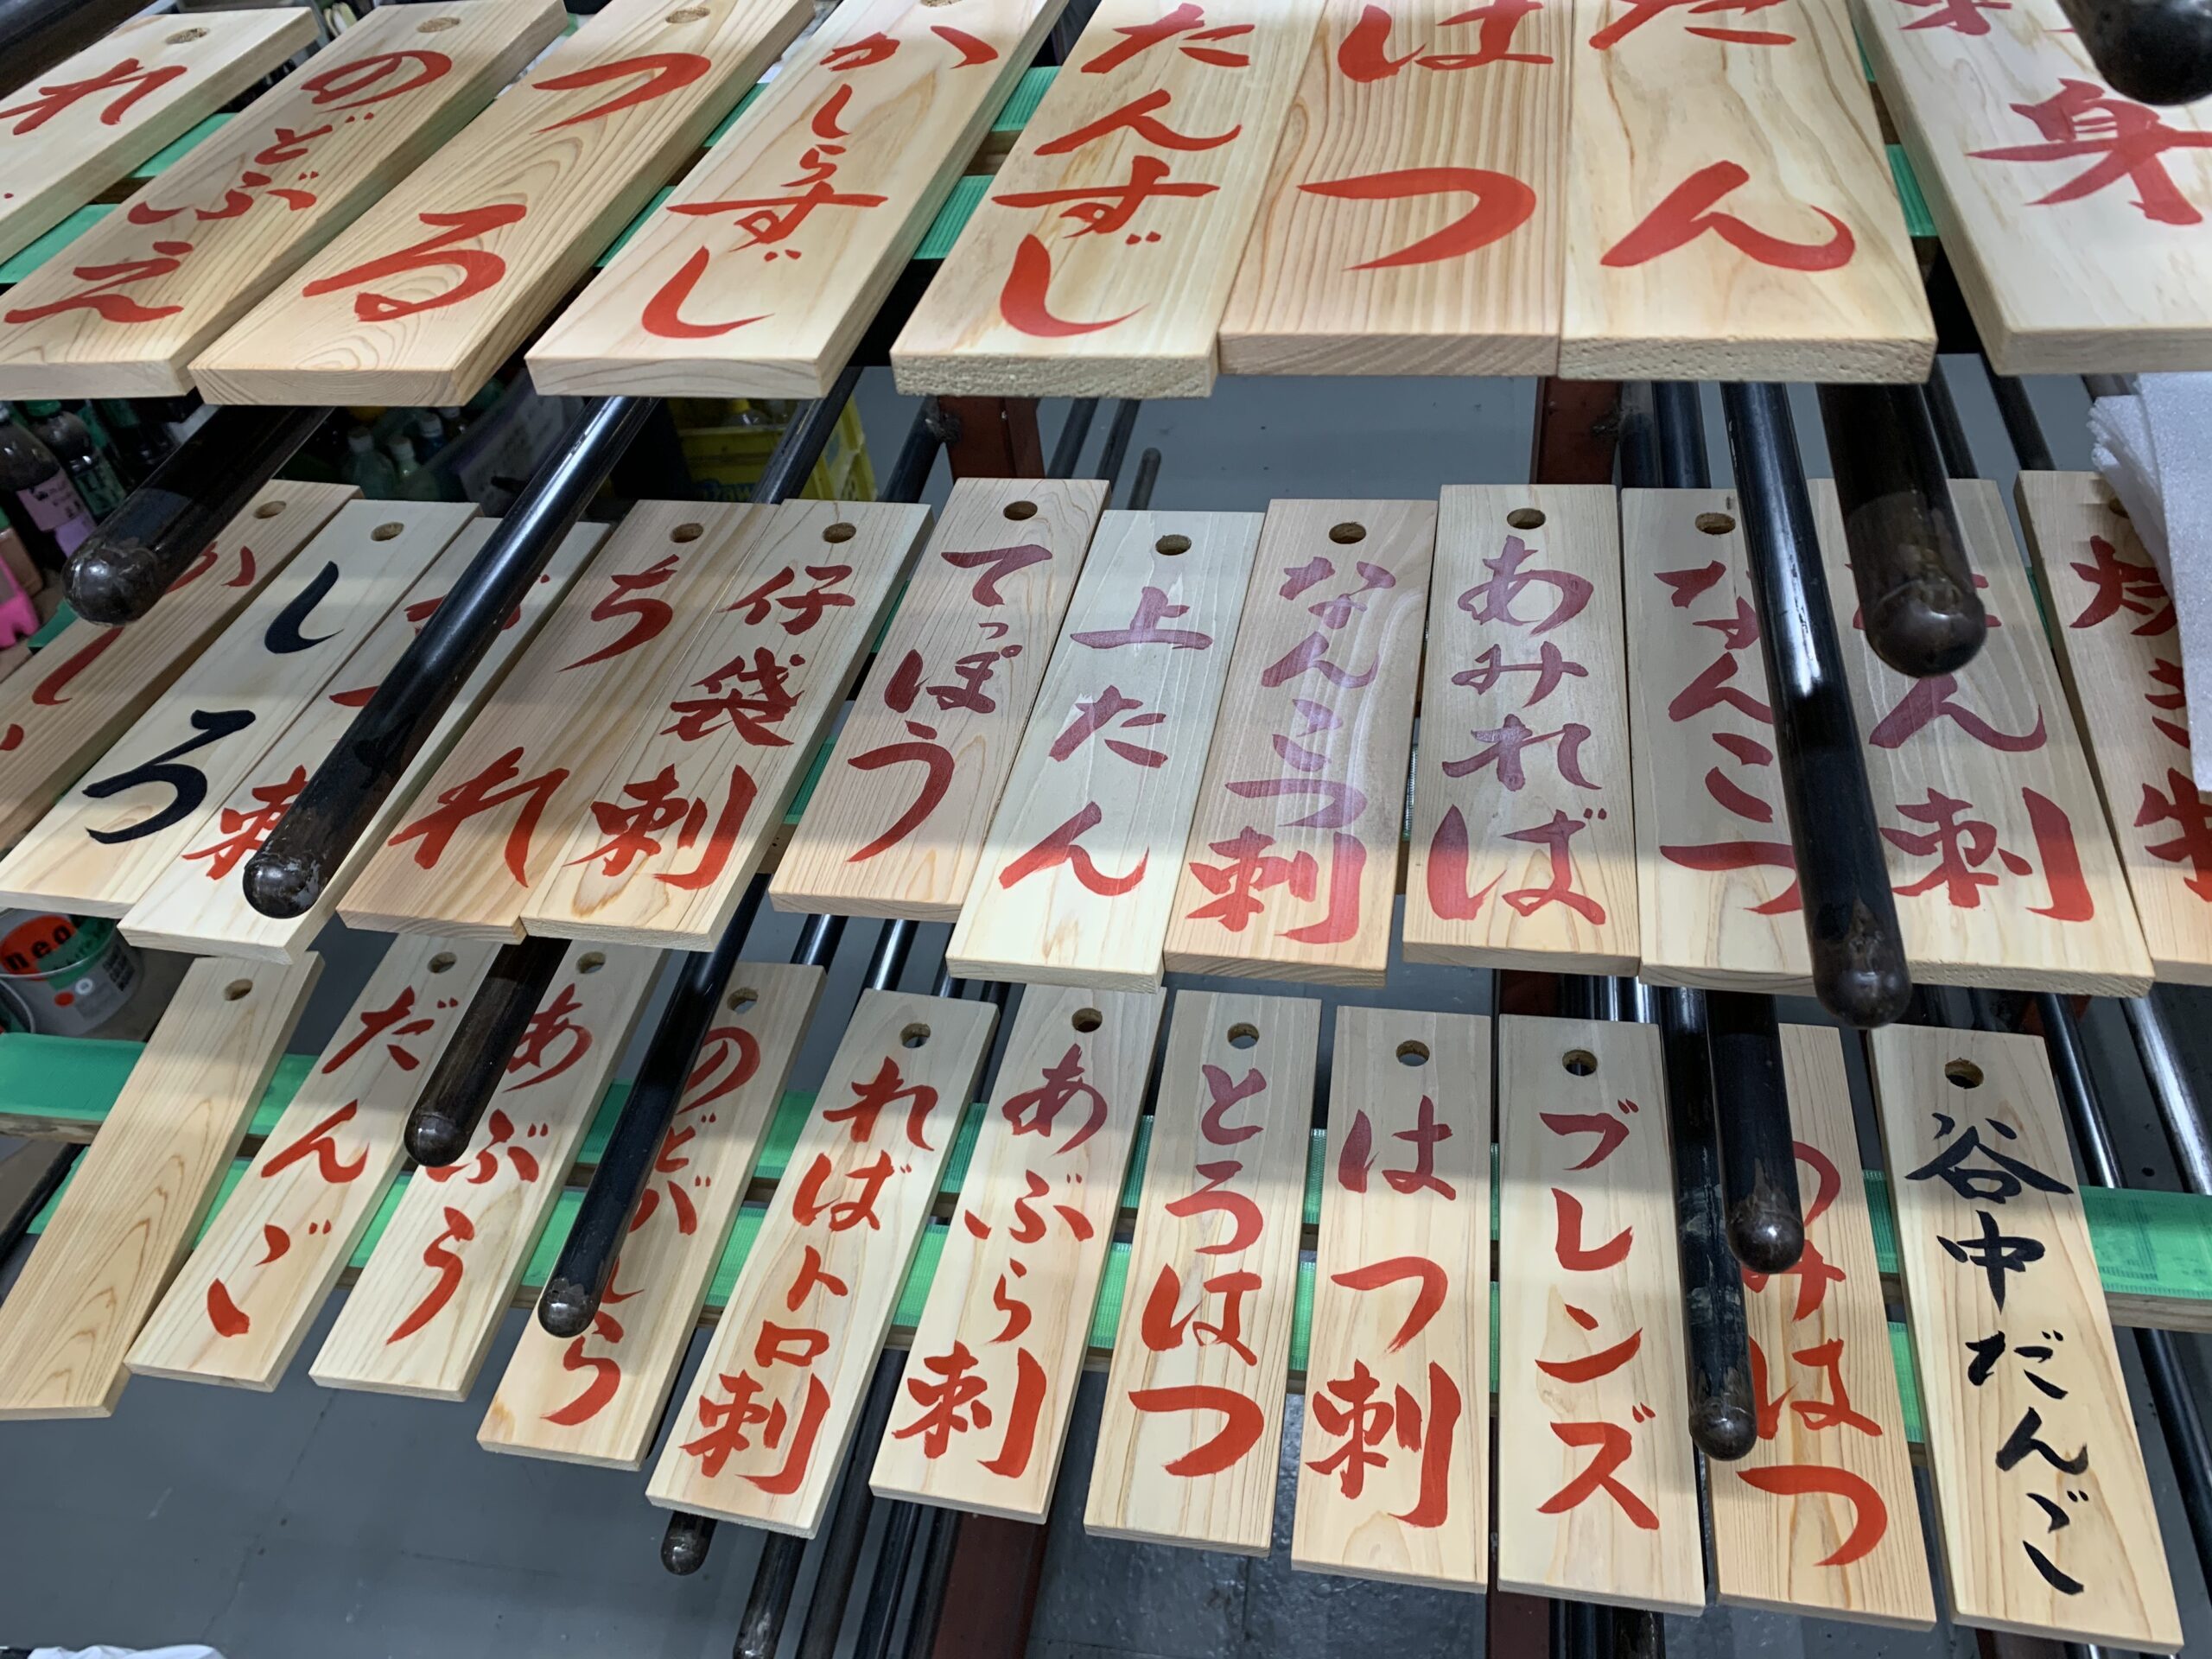 れ
のどぶえ
つる
かしらすじ
たんすじ
はつ
だん
身
しろ
刺
ちれ
仔袋刺
てっぽう
上たん
なんこつ刺
あみれば
なんこつ
ん刺
だんご
あぶら
ればトロ刺
あぶら刺
とろはつ
はつ刺
ブレンズ
はつ
谷中だんご